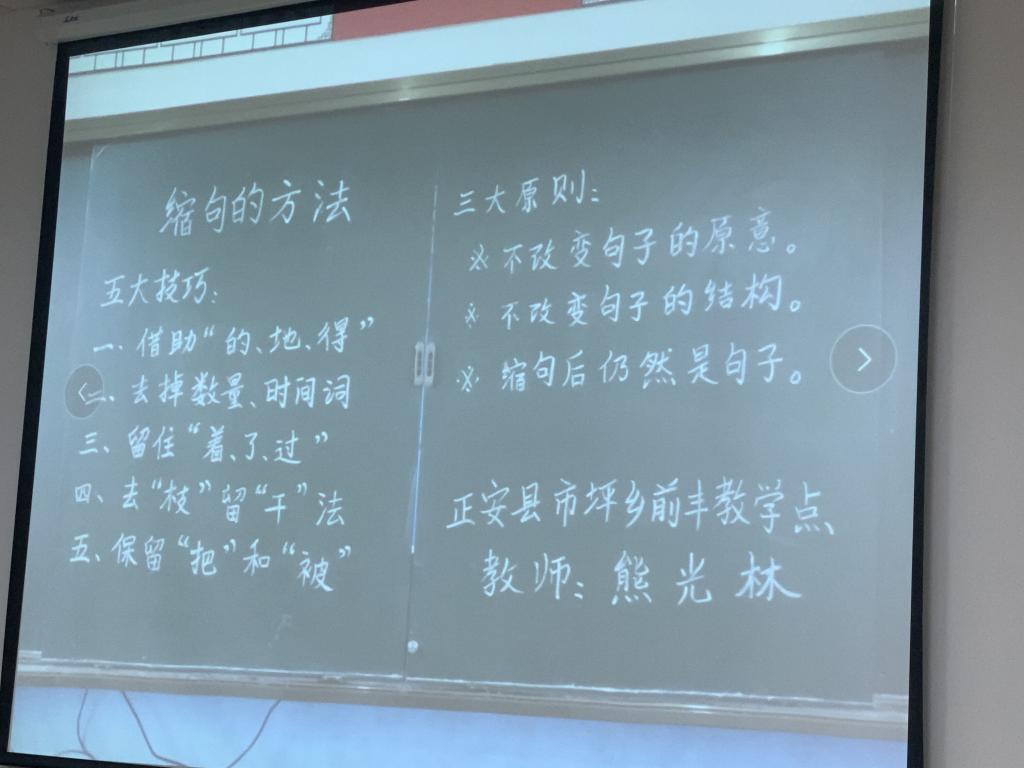 缩句的方法
五大技巧:
一、借助“的、地、得”
二、去掉数量、时间词
三、留住“着、了、过”
四、去“枝”留“干”法
五、保留“把”和“被”
三大原则:
※不改变句子的原意。
※不改变句子的结构。
※缩句后仍然是句子。
正安县市坪乡前丰教学点、
教师:熊光林